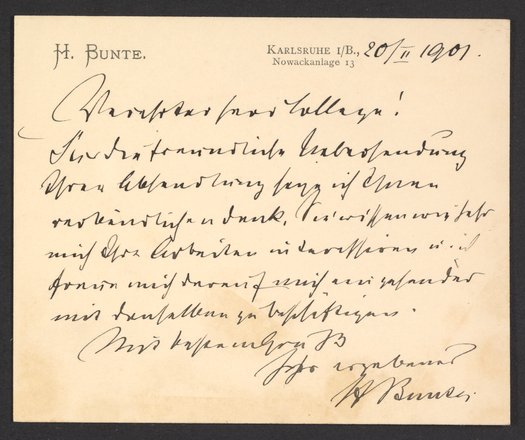 H. BUNTE.
KARLSRUHE I/B., 20/II 1901.
Nowackanlage 13
Verehrter Herr College!
Für die freundliche Uebersendung
Ihrer Abhandlung sage ich Ihnen
verbindlichen Dank. Sie wissen wie sehr
mich Ihre Arbeiten interessieren u. ich
freue mich darauf mich eingehender
mit denselben zu beschäftigen.
Mit bestem Gruß
Ihr ergebener
H Bunte